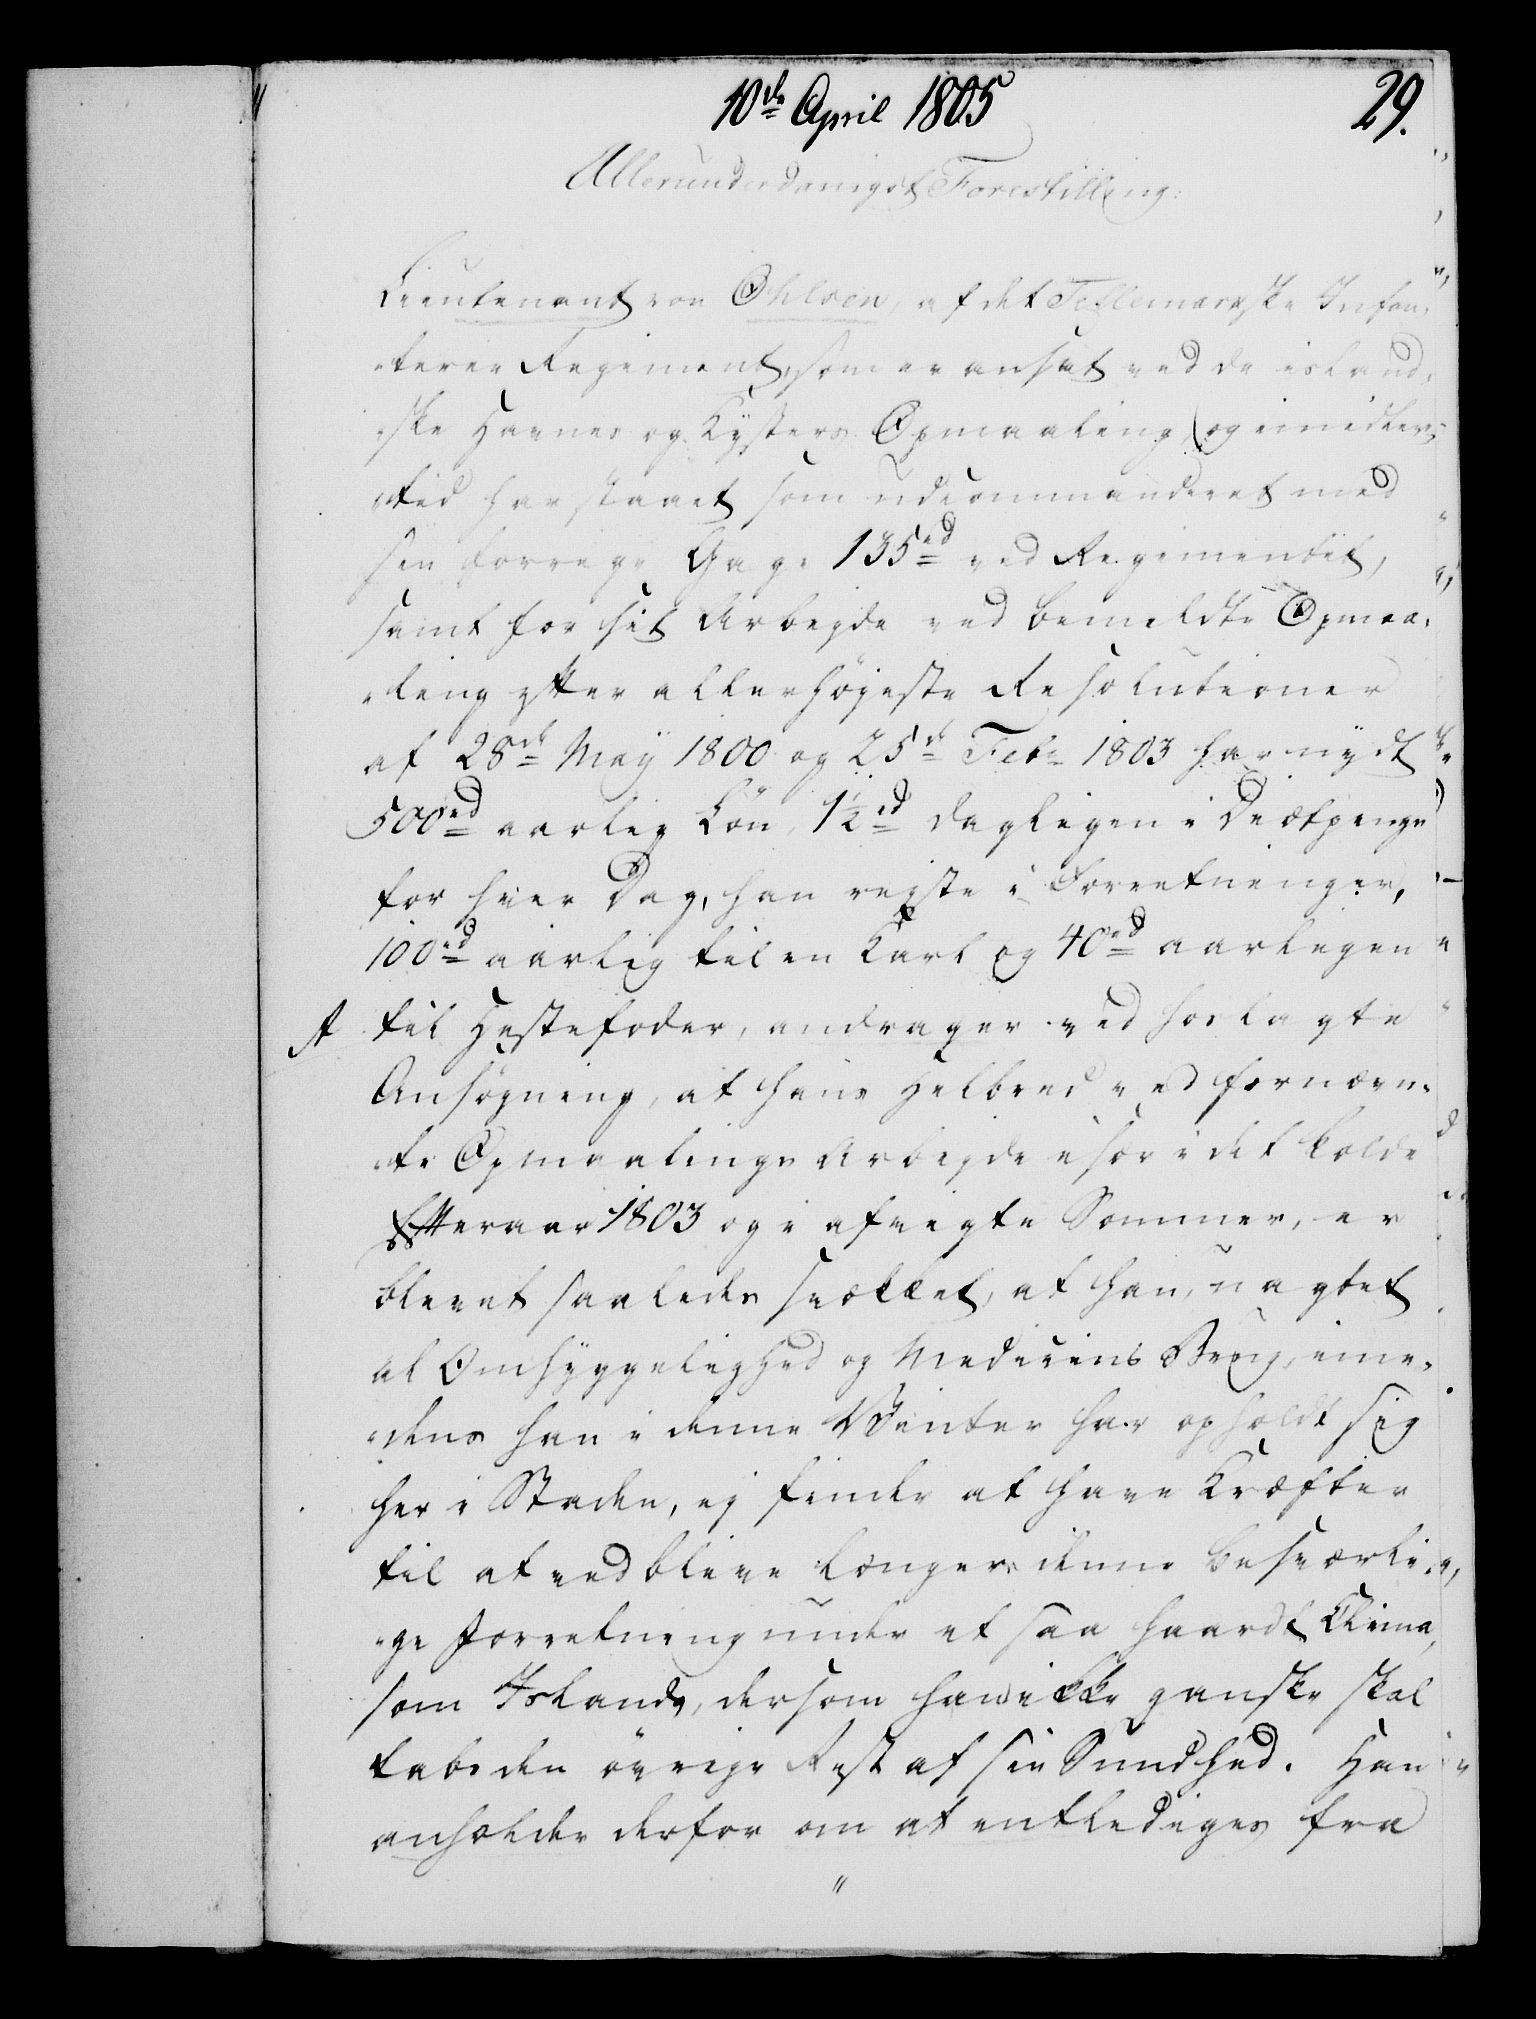 10de April 1805
29.
Allerunderdanigst Forestilling.
Lieutenant von Ohlsen, af det Tellemarkske Infan-
-terie Regiment, som er ansat ved de island-
-ske Havnes og Kysters Opmaaling, (og imidler-
-tid har staaet som udcommanderet med
sin forrige Gage 135rd ved Regimentet,
samt for sit Arbeyde ved bemeldte Opmaa-
-ling efter allerhøjeste Resolutioner
af 28de May 1800 og 25de Febr 1803 har nydt
500rd aarlig Løn, 1½rd dagligen i Diætpenge
for hver Dag, han rejste i Forretninger,
100rd aarlig til en Karl og 40rd aarligen
A til Hestefoder, andrager ved hoslagte
Ansøgning, at hans Helbred ved fornævn-
-te Opmaalings Arbejde især i det kolde
Efteraar 1803 og i afvigte Sommer, er
blevet saaledes svækket, at han, uagtet
al Omhyggelighed og Medicins Brug, ime-
-dens han i denne Vinter har opholdt sig
her i Staden, ej finder at have Kræfter
til at vedblive længere denne besværli-
-ge Forretning under et saa haardt Clima,
som Islands, dersom han ikke ganske skal
tabe den øvrige Rest af sin Sundhed. Han
anholder derfor om at entlediges fra
"